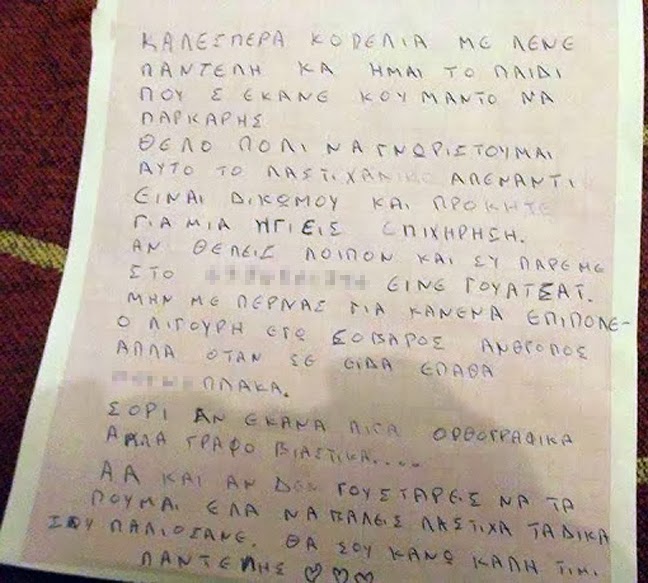 ΚΑΛΕΣΠΕΡΑ ΚΟΠΕΛΙΑ ΜΕ ΛΕΝΕ
ΠΑΝΤΕΛΗ ΚΑ ΗΜΑΙ ΤΟ ΠΑΙΔΙ
ΠΟΥ Σ ΕΚΑΝΕ ΚΟΥΜΑΝΤΟ ΝΑ
ΠΑΡΚΑΡΗΣ
ΘΕΛΟ ΠΟΛΙ ΝΑ ΓΝΩΡΙΣΤΟΥΜΑΙ
ΑΥΤΟ ΤΟ ΛΑΣΤΙΧΑΝΙΚΟ ΑΠΕΝΑΝΤΙ
ΕΙΝΑΙ ΔΙΚΩΜΟΥ ΚΑΙ ΠΡΟΚΗΤΕ
ΓΙΑ ΜΙΑ ΗΓΙΕΙΣ ΕΠΙΧΗΡΗΣΗ.
ΑΝ ΘΕΛΕΙΣ ΛΟΙΠΟΝ ΚΑΙ ΣΥ ΠΑΡΕ ΜΕ
ΣΤΟ ΕΙΝΕ ΓΟΥΑΤΣΑΤ.
ΜΗΝ ΜΕ ΠΕΡΝΑΣ ΓΙΑ ΚΑΝΕΝΑ ΕΠΙΠΟΛΕ-
Ο ΛΙΓΟΥΡΗ ΕΓΩ ΣΟΒΑΡΟΣ ΑΝΘΡΟΠΟΣ
ΑΛΛΑ ΟΤΑΝ ΣΕ ΕΙΔΑ ΕΠΑΘΑ
ΠΛΑΚΑ.
ΣΟΡΙ ΑΝ ΕΚΑΝΑ ΛΙΓΑ ΟΡΘΟΓΡΑΦΙΚΑ
ΑΛΛΑ ΓΡΑΦΟ ΒΙΑΣΤΙΚΑ.....
ΑΑ ΚΑΙ ΑΝ ΔΕΝ ΓΟΥΣΤΑΡΕΙΣ ΝΑ ΤΑ
ΠΟΥΜΑΙ ΕΛΑ ΝΑ ΒΑΛΕΙΣ ΛΑΣΤΙΧΑ ΤΑ ΔΙΚΑ
ΣΟΥ ΠΑΛΙΟΣΑΝΕ. ΘΑ ΣΟΥ ΚΑΝΩ ΚΑΛΗ ΤΙΜ.
ΠΑΝΤΕΛΗΣ ♡♡♡